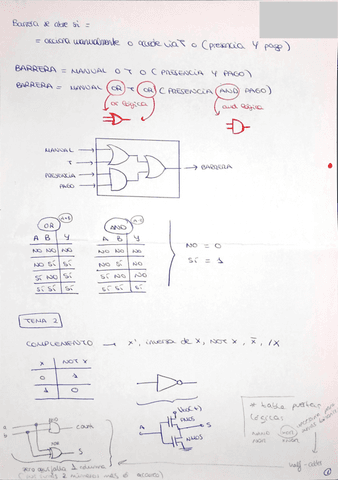 Barrera se abre si =
= acciona manualmente o accede via T o (presencia y pago)
BARRERA = MANUAL O T O (PRESENCIA Y PAGO)
BARRERA = MANUAL OR T OR (PRESENCIA AND PAGO)
or lógica
and lógica
MANUAL
T
PRESENCIA
PAGO
BARRERA
OR
AND
A B Y
A B Y
NO NO NO
NO NO NO
NO SÍ SÍ
NO SÍ NO
SÍ NO SÍ
SÍ NO NO
SÍ SÍ SÍ
SÍ SÍ SÍ
NO = 0
SÍ = 1
TEMA 2
COMPLEMENTO → X', inversa de X, NOT X, X̅, /X
X NOT X
0 1
1 0
PMOS
NMOS
A
S
* tabla puertas
lógicas
NAND
NOR
S
half-adder